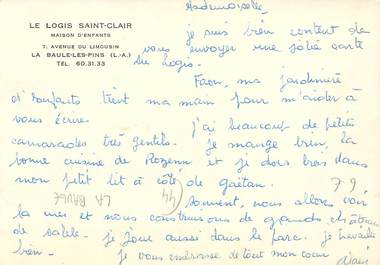 LE LOGIS SAINT-CLAIR
MAISON D'ENFANTS
7, AVENUE DU LIMOUSIN
LA BAULE-LES-PINS (L.-A.)
TÉL. 60.31.33
Mademoiselle,
je suis bien content de
vous envoyer une jolie carte
du Logis.
Faon, ma jardinière
d'enfants tient ma main pour m'aider à
vous écrire.
J'ai beaucoup de petits
camarades très gentils. je mange bien, la
bonne cuisine de Rozenn et je dors bien dans
mon petit lit à côté de gaëtan.
7-9
(44) LA BAULE
souvent, nous allons voir
la mer et nous construisons de grands châteaux
de sable. je joue aussi dans le parc. je travaille
bien. je vous embrasse de tout mon cœur
Alain